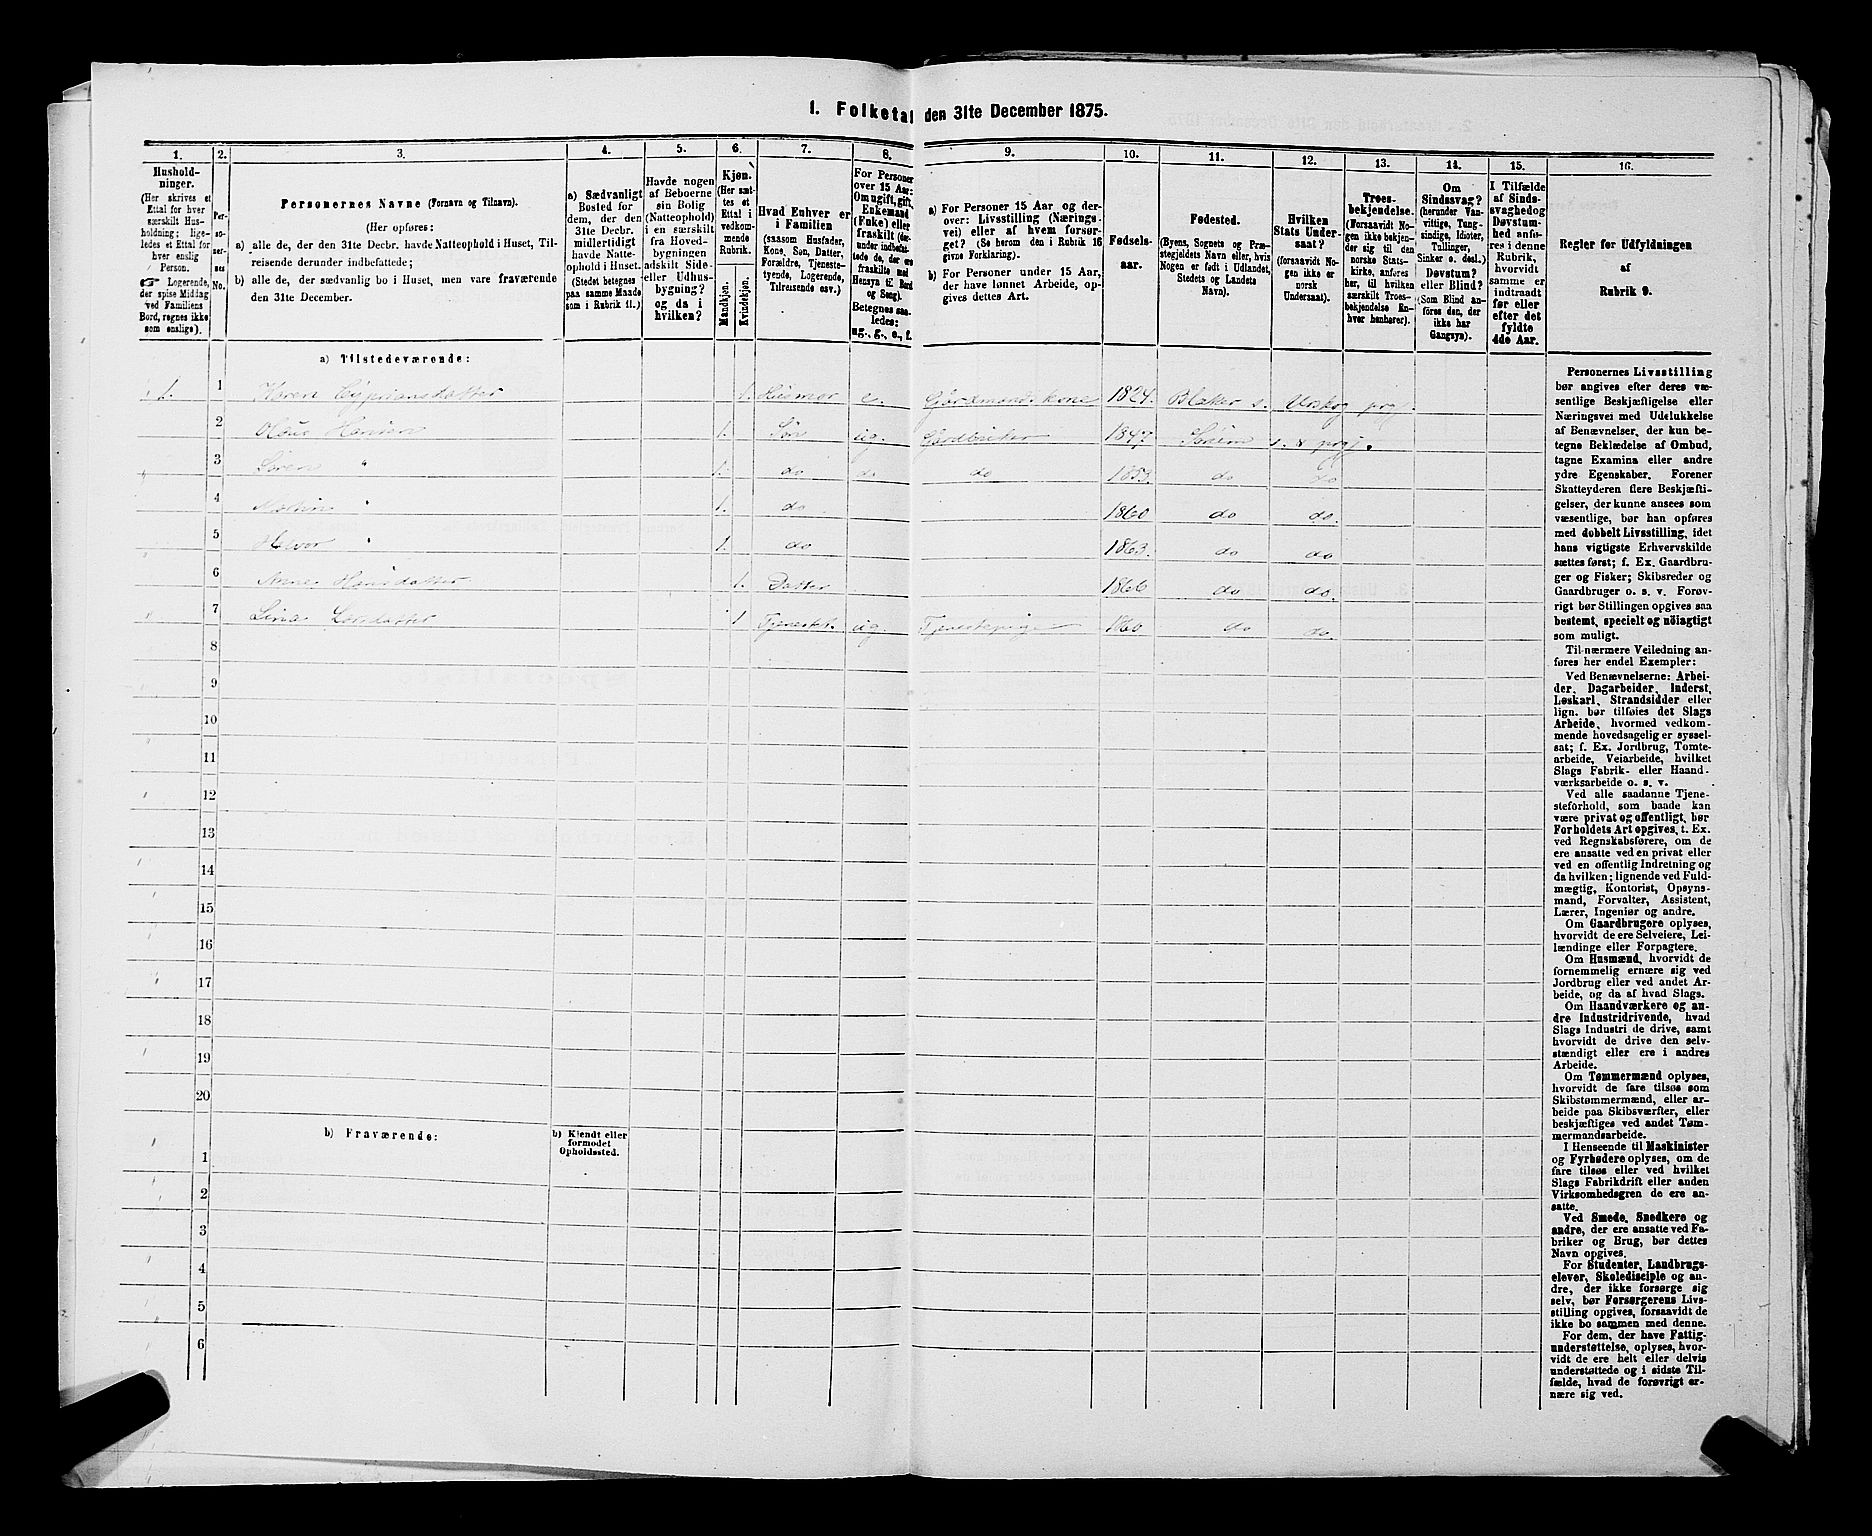 1. Folketal den 31te December 1875.
1. 2. 3. 4. 5. 6. 7. 8. 9. 10. 11. 12. 13. 14. 15. 16.
Hushold-
ninger.
(Her skrives et
Ettal for hver
særskilt Hus-
holdning; lige-
ledes et Ettal for
hver enslig
Person.
☞ Logerende,
der spise Middag
ved Familiens
Bord, regnes ikke
som enslige).
Per-
so-
ner-
nes
No.
Personernes Navne (Fornavn og Tilnavn).
(Her opføres:
a) alle de, der den 31te Decbr. havde Natteophold i Huset, Til-
reisende derunder indbefattede;
b) alle de, der sædvanlig bo i Huset, men vare fraværende
den 31te December.
a) Sædvanligt
Bosted for
dem, der den
31te Decbr.
midlertidigt
havde Natte-
ophold i Huset.
(Stedet betegnes
paa samme Maade
som i Rubrik 11.)
Havde nogen
af Beboerne
sin Bolig
(Natteophold)
i en særskilt
fra Hoved-
bygningen
adskilt Side-
eller Udhus-
bygning?
og da i
hvilken?
Kjøn.
(Her sæt-
tes et
Ettal i
vedkom-
mende
Rubrik.
Mandkjøn.
Kvindekjøn.
Hvad Enhver er
i Familien
(saasom Husfader,
Kone, Søn, Datter,
Forældre, Tjeneste-
tyende, Logerende,
Tilreisende osv.)
For Personer
over 15 Aar:
Om ugift, gift,
Enkemand
(Enke) eller
fraskilt (der-
under indbefat-
tede de, der ere
fraskilte med
Hensyn til Bord
og Seng).
Betegnes saa-
ledes:
ug., g., e., f.
a) For Personer 15 Aar og der-
over: Livsstilling (Nærings-
vei) eller af hvem forsør-
get? (Se herom den i Rubrik 16
givne Forklaring).
b) For Personer under 15 Aar,
der have lønnet Arbeide, op-
gives dettes Art.
Fødsels-
aar.
Fødested.
(Byens, Sognets og Præ-
stegjeldets Navn eller, hvis
Nogen er født i Udlandet,
Stedets og Landets
Navn).
Hvilken
Stats Under-
saat?
(forsaavidt No-
gen ikke er
norsk
Undersaat).
Troes-
bekjendelse.
(Forsaavidt No-
gen ikke bekjen-
der sig til den
norske Stats-
kirke, anføres
her, til hvilken
særskilt Troes-
bekjendelse En-
hver henhører).
Om
Sindssvag?
(herunder Van-
vittige, Tung-
sindige, Idioter,
Tullinger,
Sinker o. desl.)
Døvstum?
eller Blind?
(Som Blind an-
føres den, der
ikke har
Gangsyn).
I Tilfælde
af Sinds-
svaghed og
Døvstum-
hed anfø-
res i denne
Rubrik,
hvorvidt
samme er
indtraadt
før eller
efter det
fyldte
4de Aar.
Regler for Udfyldningen
af
Rubrik 9.
a) Tilstedeværende:
1. 1 Karen Cypriansdatter 1. Husmor e. Gårdmands kone 1824. Blaker s. Urskog prgj.
2 Olaus Hansen 1. Søn ug. Gårdbruker 1847 Sørum s. & prgj.
3 Søren " 1. do do do 1853. do do
4 " 1. do 1860 do do.
5 Halvor " 1. do 1863. do do
6 Anne Hansdatter 1. Datter 1866 do do.
7 Lina Larsdatter 1 Tjenestet. ug Tjenestepige 1860 do do.
8
9
10
11
12
13
14
15
16
17
18
19
20
b) Fraværende:
b) Kjendt eller
formodet
Opholdssted.
1
2
3
4
5
6
Personernes Livsstilling
bør angives efter deres væ-
sentlige Beskjæftigelse eller
Næringsvei med Udelukkelse
af Benævnelser, der kun be-
tegne Beklædelse af Ombud,
tagne Examina eller andre
ydre Egenskaber. Forener
Skatteyderen flere Beskjæfti-
gelser, der kunne ansees som
væsentlige, bør han opføres
med dobbelt Livsstilling, idet
hans vigtigste Erhvervskilde
sættes først; f. Ex. Gaardbru-
ger og Fisker; Skibsreder og
Gaardbruger o. s. v. Forøv-
rigt bør Stillingen opgives saa
bestemt, specielt og nöiagtigt
som muligt.
Til nærmere Veiledning an-
føres her endel Exempler:
Ved Benævnelserne: Arbei-
der, Dagarbeider, Inderst,
Løskarl, Strandsidder eller
lign. bør tilføies det Slags
Arbeide, hvormed vedkom-
mende hovedsagelig er syssel-
sat; f. Ex. Jordbrug, Tomte-
arbeide, Veiarbeide, hvilket
Slags Fabrik- eller Haand-
værksarbeide o. s. v.
Ved alle saadanne Tjene-
steforhold, som baade kan
være privat og offentligt, bør
Forholdets Art opgives, t. Ex.
ved Regnskabsførere, om de
ere ansatte ved en privat eller
ved en offentlig Indretning og
da hvilken; lignende ved Fuld-
mægtig, Kontorist, Opsyns-
mand, Forvalter, Assistent,
Lærer, Ingeniør og andre.
Om Gaardbrugere oplyses,
hvorvidt de ere Selveiere, Lei-
lændinge eller Forpagtere.
Om Husmænd, hvorvidt de
fornemmelig ernære sig ved
Jordbrug eller ved andet Ar-
beide, og da af hvad Slags.
Om Haandværkere og an-
dre Industridrivende, hvad
Slags Industri de drive, samt
hvorvidt de drive den selv-
stændigt eller ere i andres
Arbeide.
Om Tømmermænd oplyses,
hvorvidt de fare tilsøs som
Skibstømmermænd, eller ar-
beide paa Skibsværfter, eller
beskjæftiges ved andet Tøm-
mermandsarbeide.
I Henseende til Maskinister
og Fyrbødere oplyses, om de
fare tilsøs eller ved hvilket
Slags Fabrikdrift eller anden
Virksomhedsgren de ere an-
satte.
Ved Smede, Snedkere og
andre, der ere ansatte ved Fa-
briker og Brug, bør dettes
Navn opgives.
For Studenter, Landbrugs-
elever, Skoledisciple og an-
dre, der ikke forsørge sig
selv, bør Forsørgerens Livs-
stilling opgives, forsaavidt de
ikke bo sammen med denne.
For dem, der have Fattig-
understøttelse, oplyses, hvor-
vidt de ere helt eller delvis
understøttede og i sidste Til-
fælde, hvad de forøvrigt er-
nære sig ved.